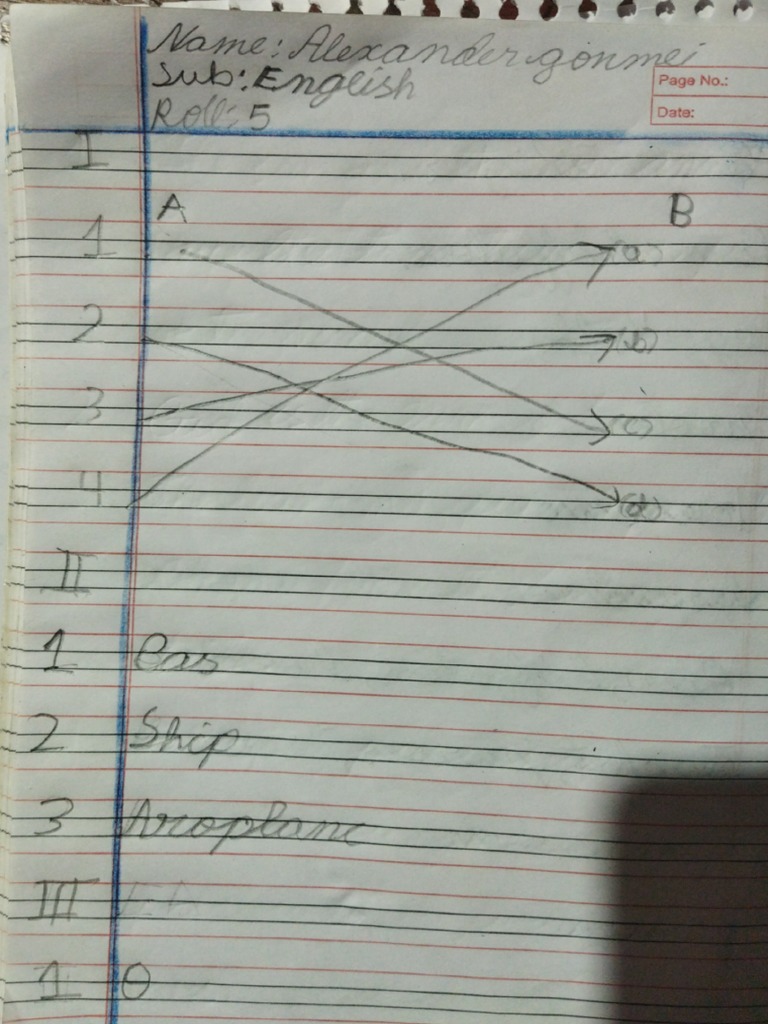 Name: Alexander gonmei
Sub: English
Page No.:
Roll: 5
Date:
I
A B
1 (a)
2 (b)
3 (c)
4 (d)
II
1
2 Ship
3 Aroplane
III
1 O